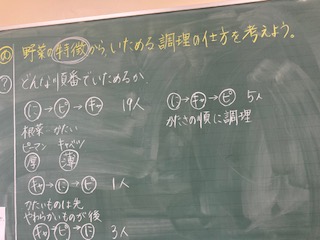 め 野菜の特徴から、いためる調理の仕方を考えよう。
? どんな順番でいためるか
に→ピ→キャ 19人
根菜 かたい
ピーマン キャベツ
厚 薄
に→キャ→ピ 5人
かたさの順に調理
キャ→に→ピ 1人
かたいものは先
やわらかいものが後
キャ→ピ→に 3人